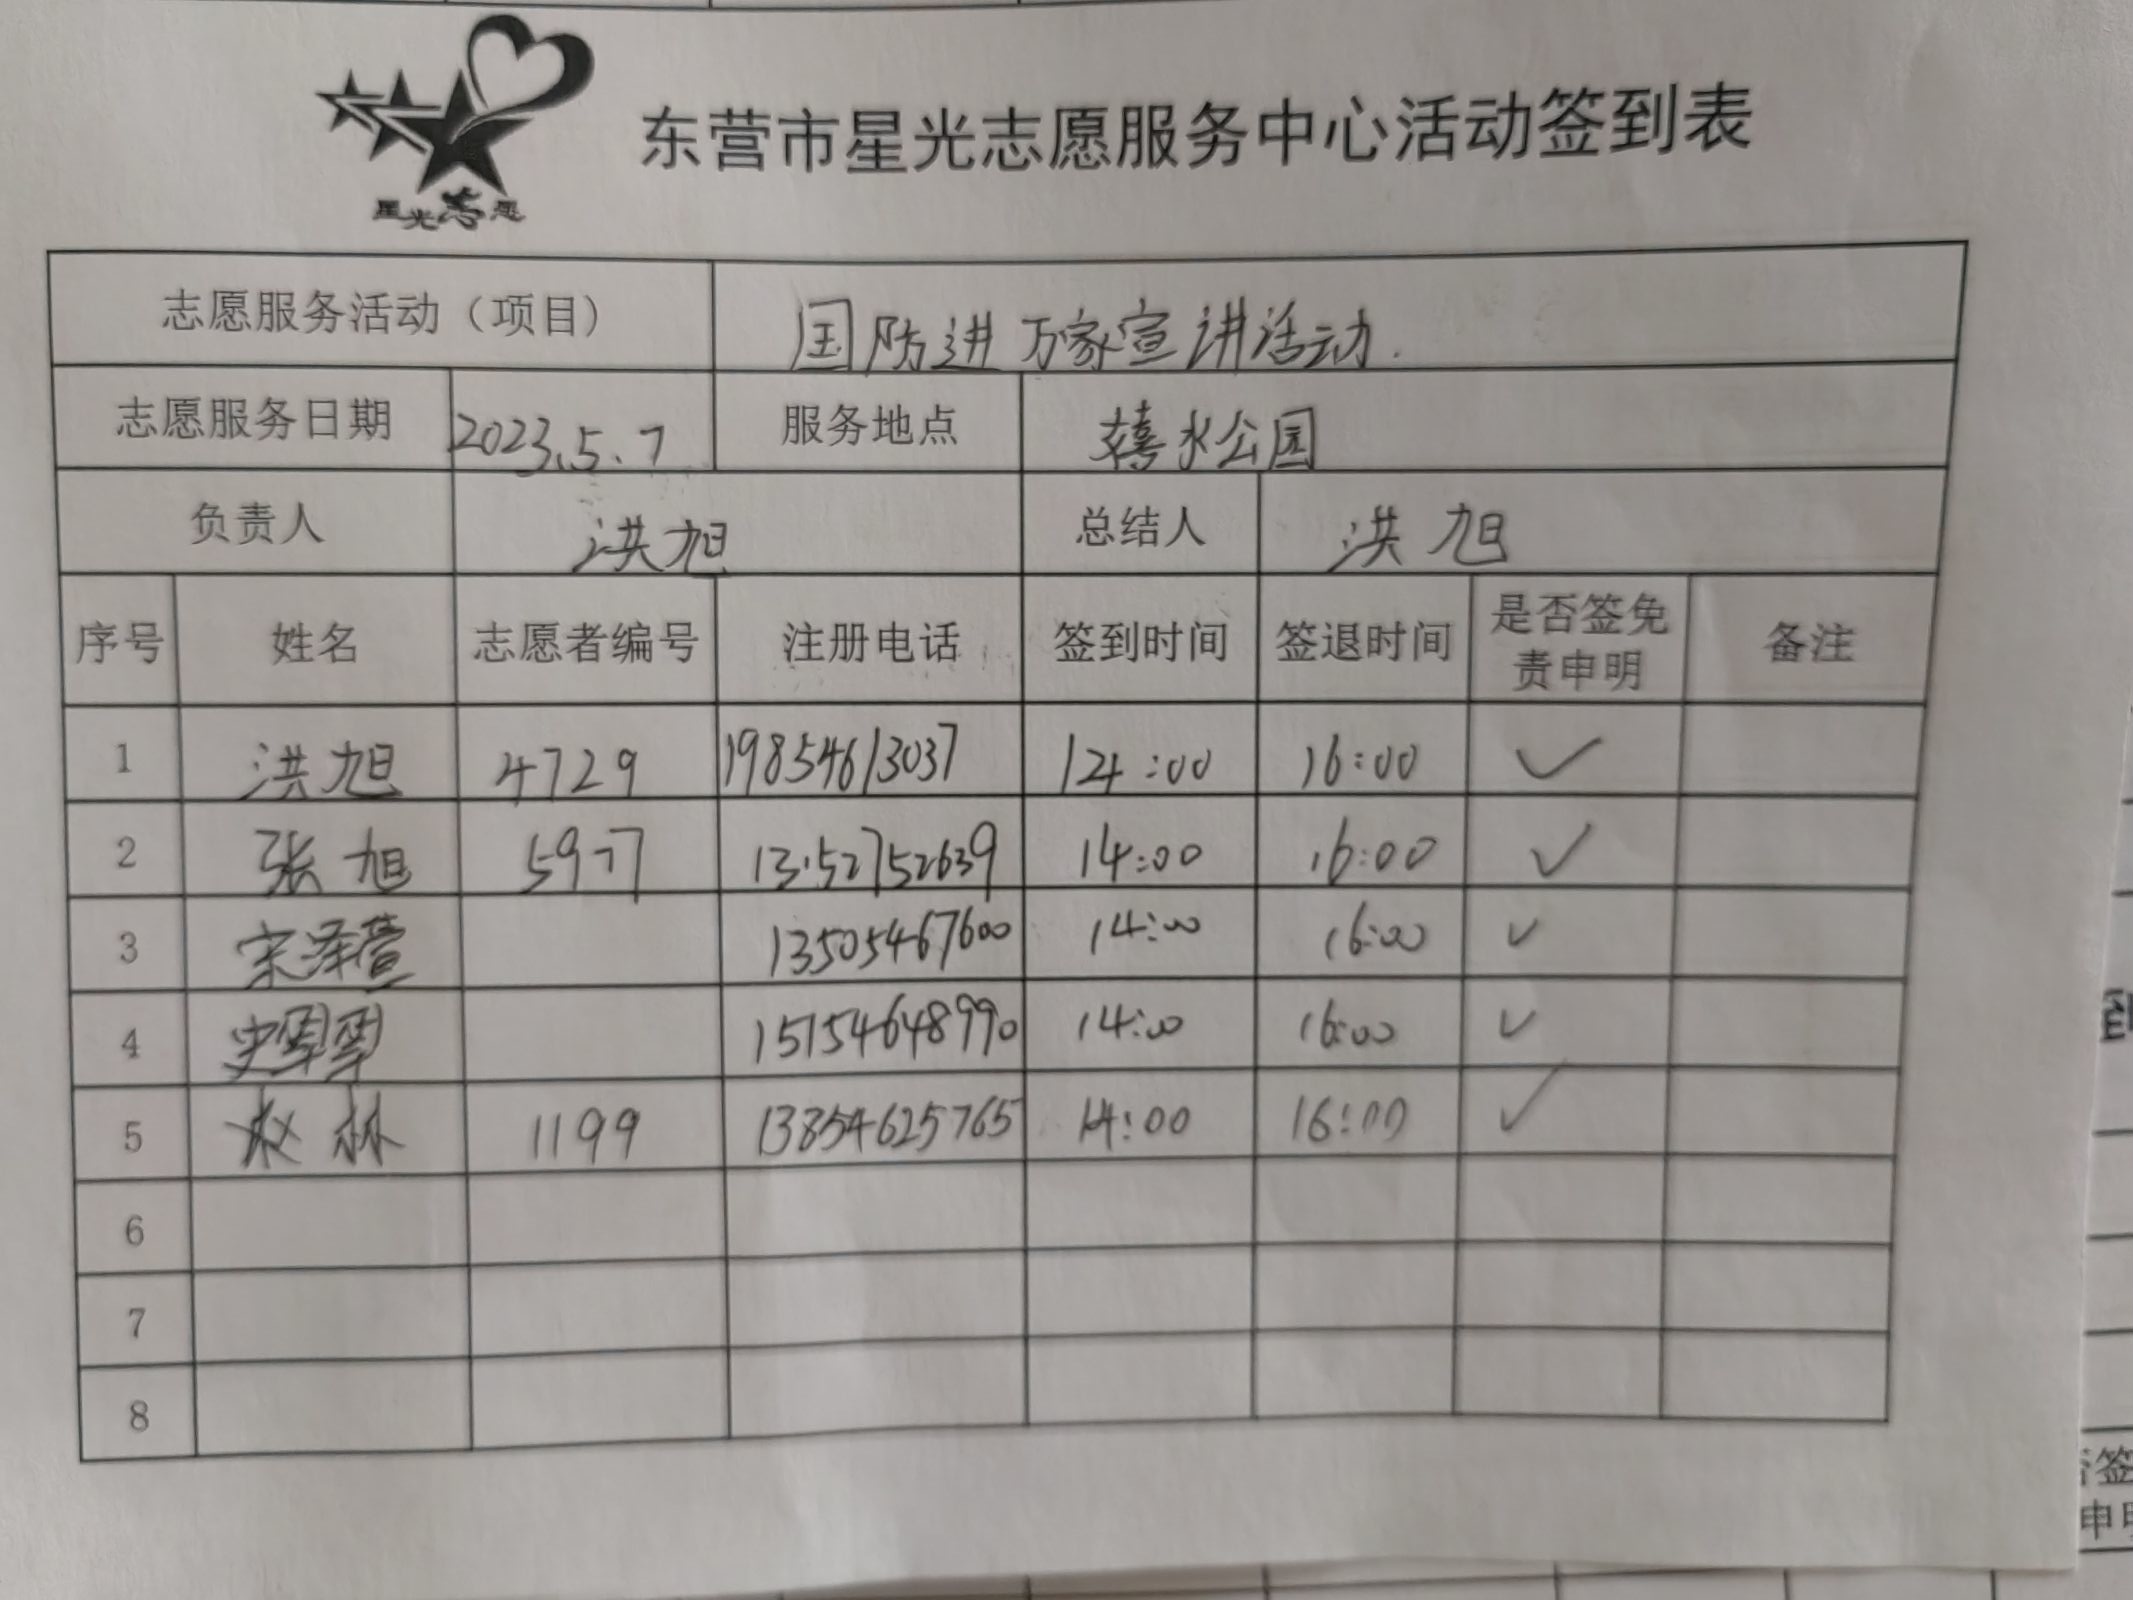 东营市星光志愿服务中心活动签到表
星光志愿
志愿服务活动（项目） 国防进万家宣讲活动.
志愿服务日期 2023.5.7 服务地点 水公园
负责人 洪旭 总结人 洪旭
序号 姓名 志愿者编号 注册电话 签到时间 签退时间 是否签免
责申明 备注
1 洪旭 4729 19854613037 14:00 16:00 ✓
2 张旭 5977 14:00 16:00 ✓
3 宋泽萱 13505467600 14:00 16:00 ✓
4 史 15154648990 14:00 16:00 ✓
5 赵林 1199 13854625765 14:00 16:00 ✓
6
7
8
签
申明